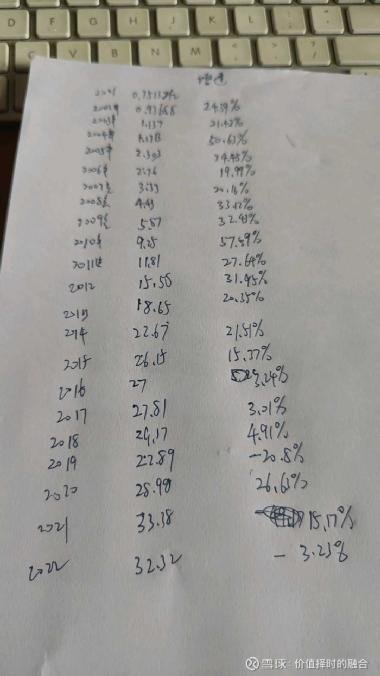 增速
2001 0.7513亿
2002年 0.93668 24.59%
2003年 1.137 21.42%
2004年 50.63%
2005年 2.303
2006年 2.76 19.99%
2007年 3.33 20.18%
2008年 4.43 33.12%
2009年 5.87 32.43%
2010年 9.25 57.49%
2011年 11.81 27.64%
2012 15.50 31.45%
2013 18.65 20.35%
2014 22.67 21.51%
2015 26.15 15.37%
2016 27 3.24%
2017 27.81 3.01%
2018 29.17 4.91%
2019 22.89 -20.8%
2020 28.98 26.63%
2021 33.38 15.17%
2022 32.32 - 3.23%
雪球：价值择时的融合